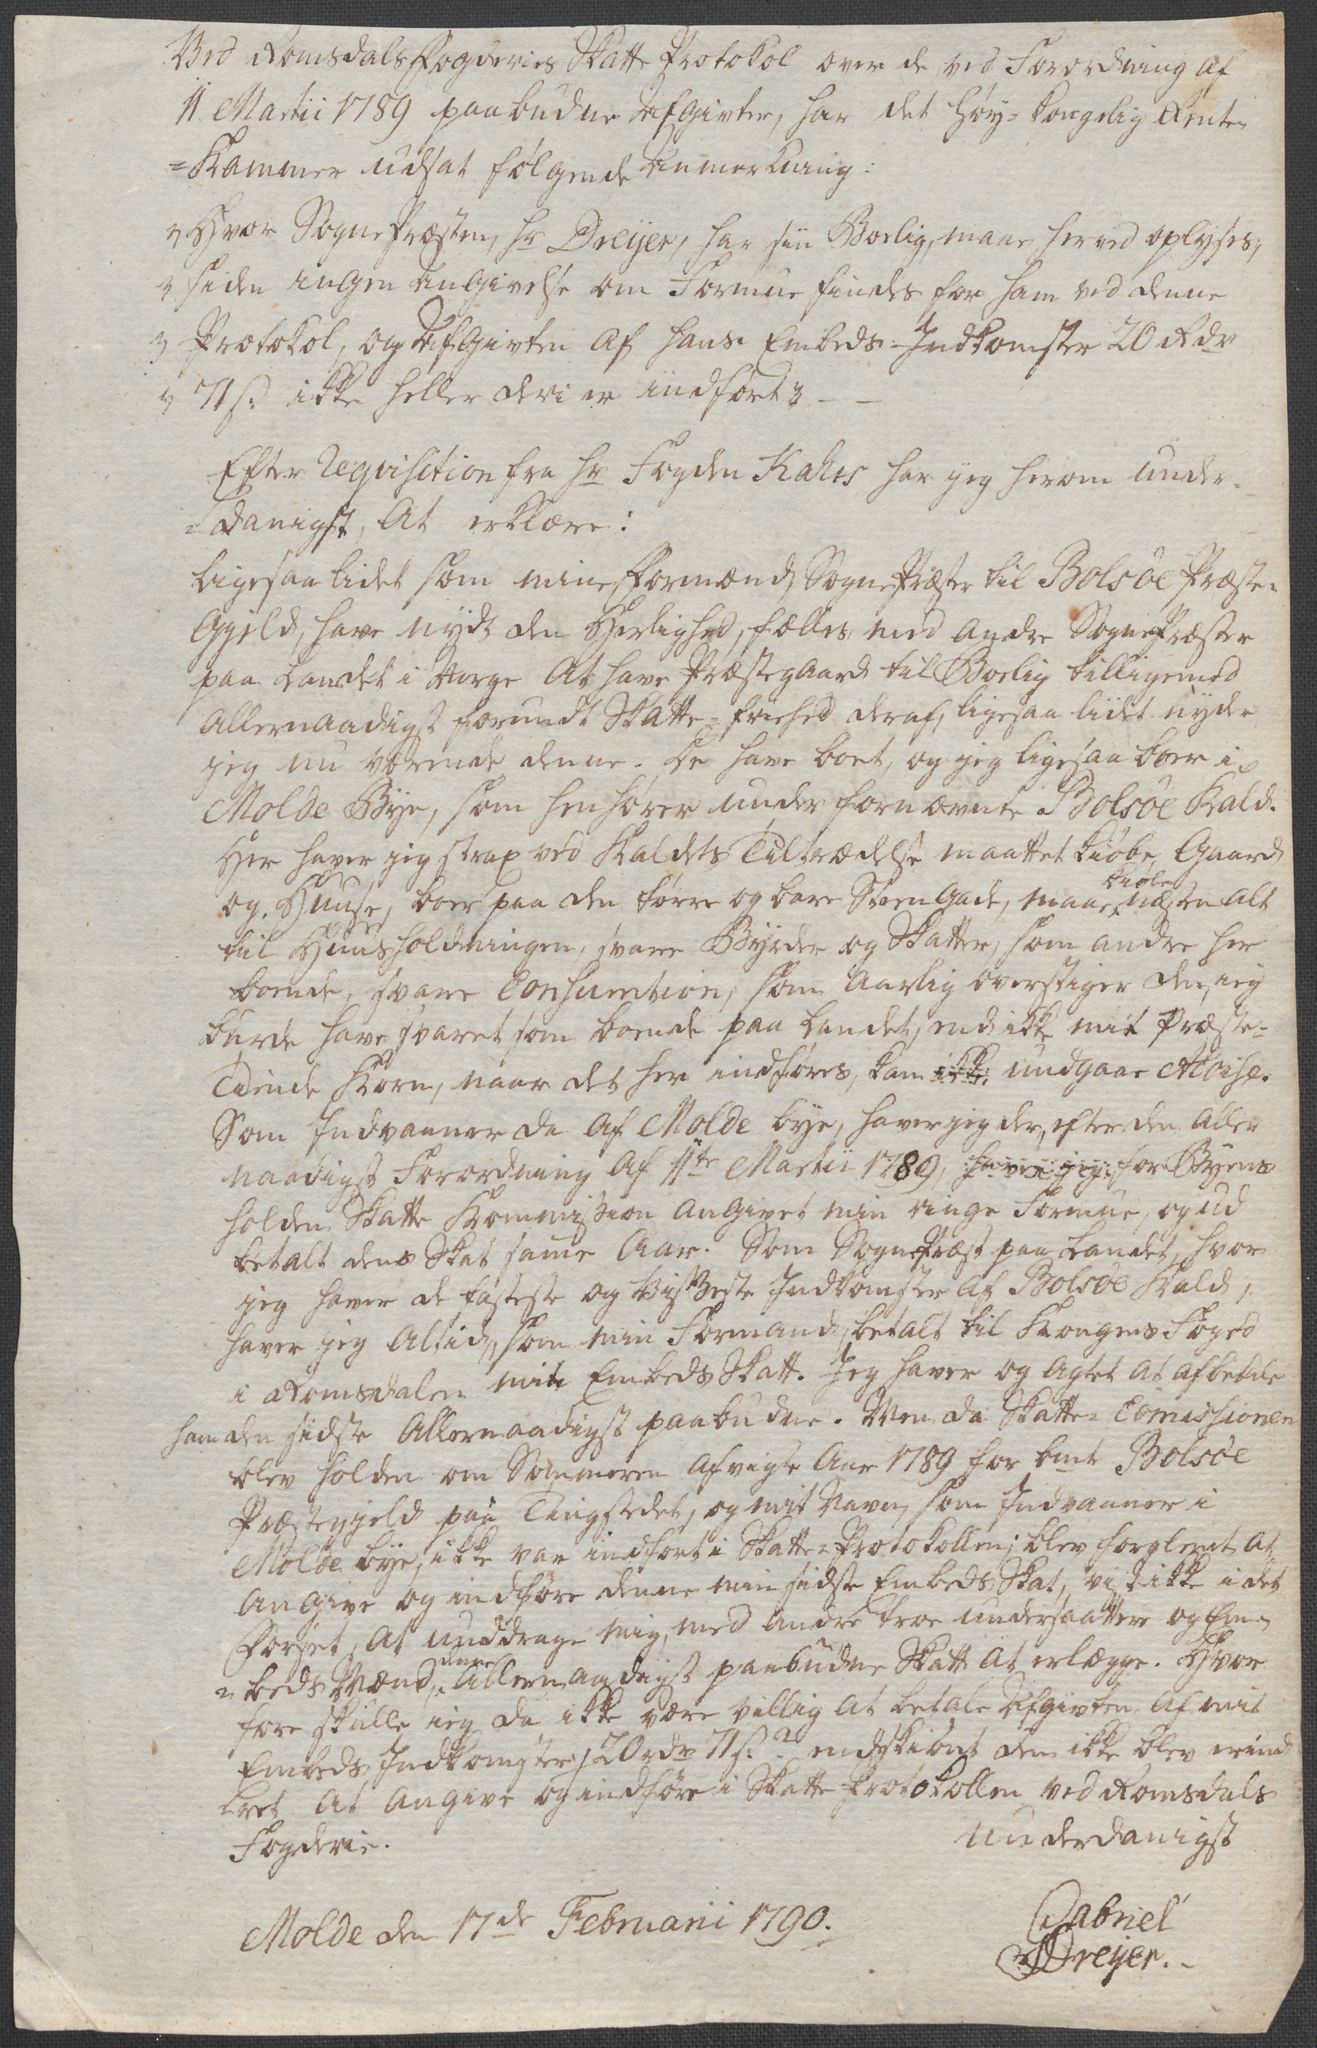 Ved Romsdals Fogderies Skatte Protokol over de ved Forordning af
11 Martii 1789 paabudne Afgivter, har det Høy-kongelig Rente-
=Kammer udsat følgende Anmerkning:
"Hvor SognePræsten, Hr Dreyer, har sin Boelig, maae herved oplyses,
"siden ingen Angivelse om Formue findes for ham ved denne
"Protokol, og Afgivten af hans Embeds-Indkomster 20 Rdr
"71 s. ikke heller deri er indført" - -
Efter Requisition fra Hr Fogden Kahrs har jeg herom under-
=danigst, At erklære:
Ligesaa lidet som mine Formænd, SognePræster til Bolsøe Præste-
Gjeld, have nydt den Herlighed, fælles med andre SognePræster
paa Landet i Norge At have Præstegaard til Boelig tilligemed
Allernaadigst forundt Skatte-friehed deraf, ligesaa lidet nyder
jeg nu værende denne. De have boet, og jeg ligesaa boer i
Molde Bye, som henhører under fornævnte Bolsøe Kald.
Her haver jeg strax ved Kaldets Tiltrædelse maattet kiøbe, Gaard
og Huuse, boer paa den tørre og bare Steen Gade, maae kiøbe næsten alt
til Huusholdningen, svare Byrder og Skatter, som andre her
boende, svare Consumtion, som Aarlig overstiger den, jeg
burde have svaret som boende paa Landet, end ikke mit Præste-
Tiende Korn, naar det her indføres, kan ikke undgaae Accise.
Som Indvaaner da af Molde bye, haver jeg der, efter den Aller
naadigst Forordning af 11te Martii 1789, haver jeg for Byens
holden Skatte Kommission Angivet min ringe Formue, og ud
betalt dens Skat samme Aar. Som SognePræst paa Landet, hvor
jeg haver de fasteste og visseste Indkomster af Bolsøe Kald,
haver jeg Altid, som min Formand, betalt til Kongens Foged
i Romsdalen mit Embeds Skatt. Jeg haver og Agtet at afbetale
ham den sidste Allernaadigst paabudne. Men da Skatte-Comissionen
blev holden om Sommeren Afvigte Aar 1789 for bmte Bolsøe
Præstegjeld paa Tingstedet, og mit Navn, som Indvaaner i
Molde bye, ikke var indført i Skatte-Protokollen, blev forglemt At
Angive og indføre denne min sidste Embeds Skat, vist ikke i det
Forset, At unddrage mig, med andre troe Undersaatter og Em-
=beds Mænd, denne Allernaadigst paabudne Skatt At erlægge. Hvor
fore skulle jeg da ikke være villig At betale Afgivten af mit
Embeds Indkomster, 20 rdr 71 s.? endskiønt den ikke blev erind
dret At Angive og indføre i Skatte Protokollen ved Romsdals
Fogderie.
Underdanigst
Molde den 17de Februarii 1790.
Gabriel
Dreyer.